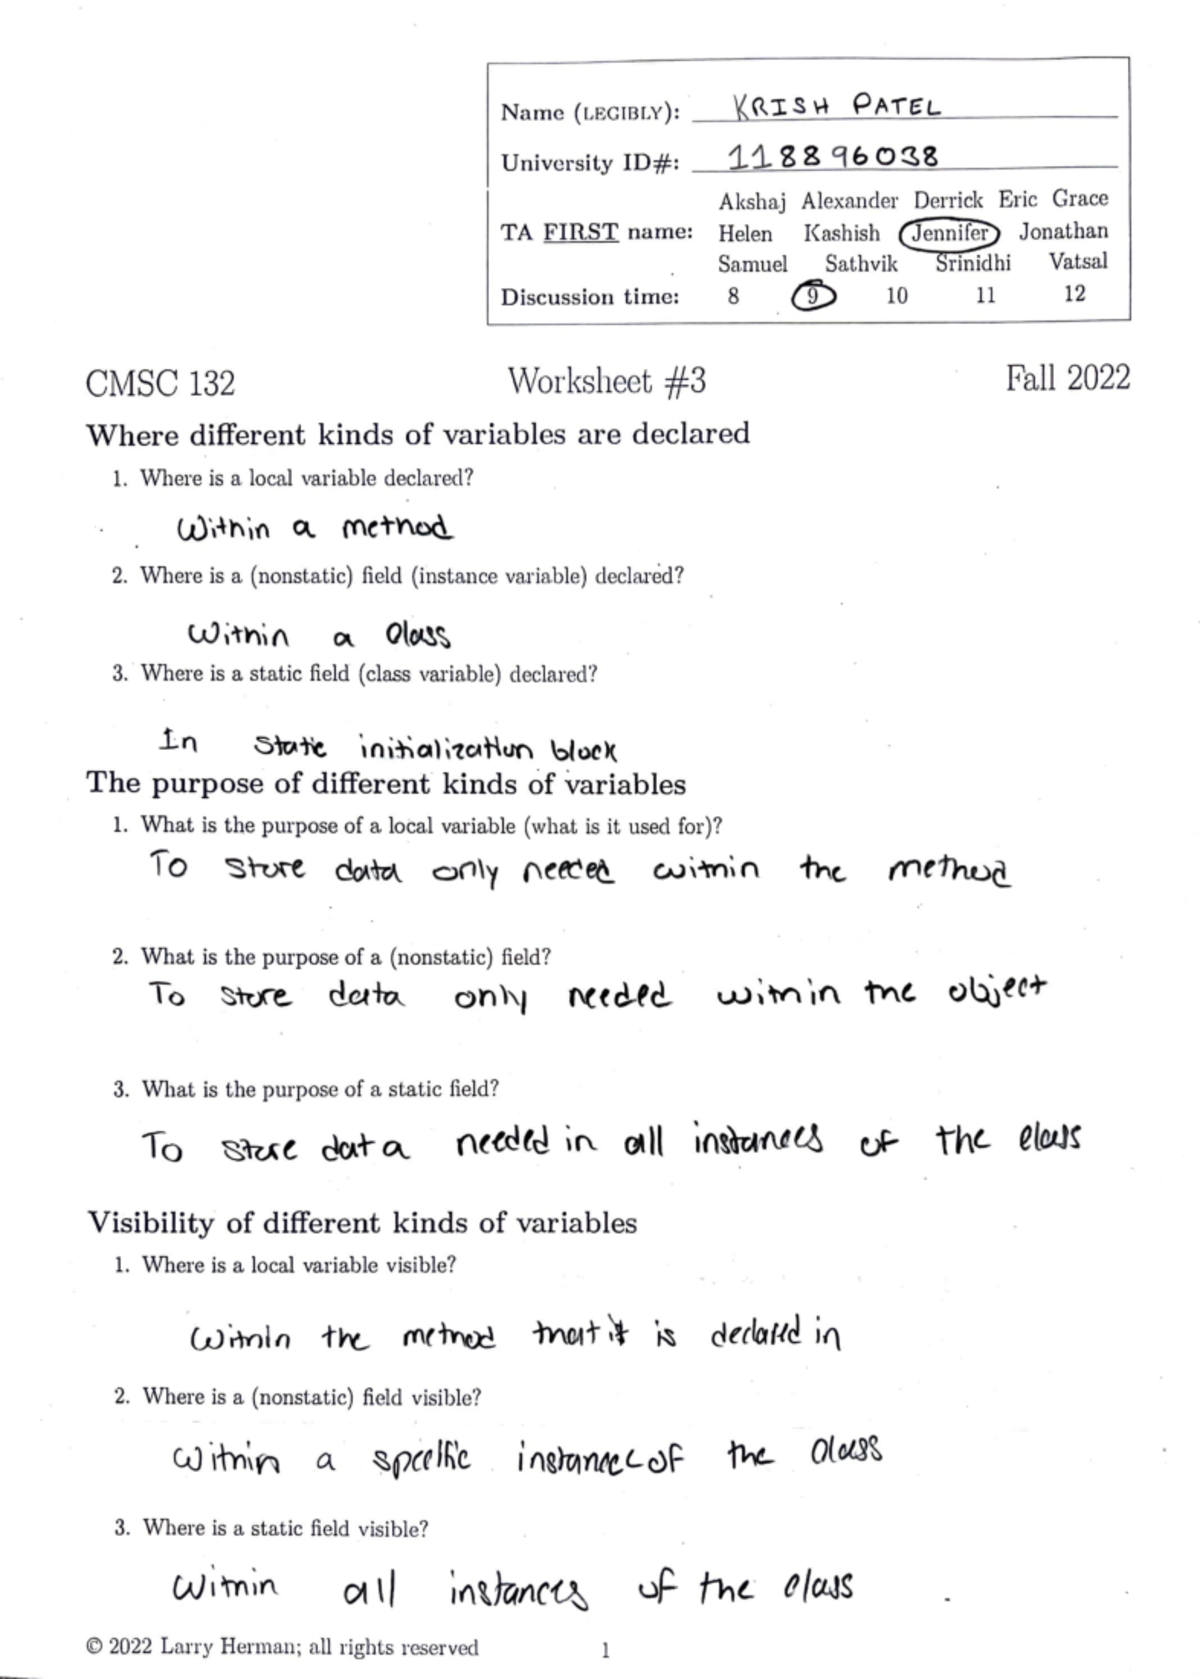 Name (LEGIBLY): KRISH PATEL
University ID#: 118896038
Akshaj Alexander Derrick Eric Grace
TA FIRST name: Helen Kashish Jennifer Jonathan
Samuel Sathvik Srinidhi Vatsal
Discussion time: 8 9 10 11 12
CMSC 132 Worksheet #3 Fall 2022
Where different kinds of variables are declared
1. Where is a local variable declared?
Within a method
2. Where is a (nonstatic) field (instance variable) declared?
Within a class
3. Where is a static field (class variable) declared?
In static initialization block
The purpose of different kinds of variables
1. What is the purpose of a local variable (what is it used for)?
To store data only needed within the method
2. What is the purpose of a (nonstatic) field?
To store data only needed within the object
3. What is the purpose of a static field?
To store data needed in all instances of the class
Visibility of different kinds of variables
1. Where is a local variable visible?
Within the method that it is declared in
2. Where is a (nonstatic) field visible?
Within a specific instance of the class
3. Where is a static field visible?
Within all instances of the class
© 2022 Larry Herman; all rights reserved 1